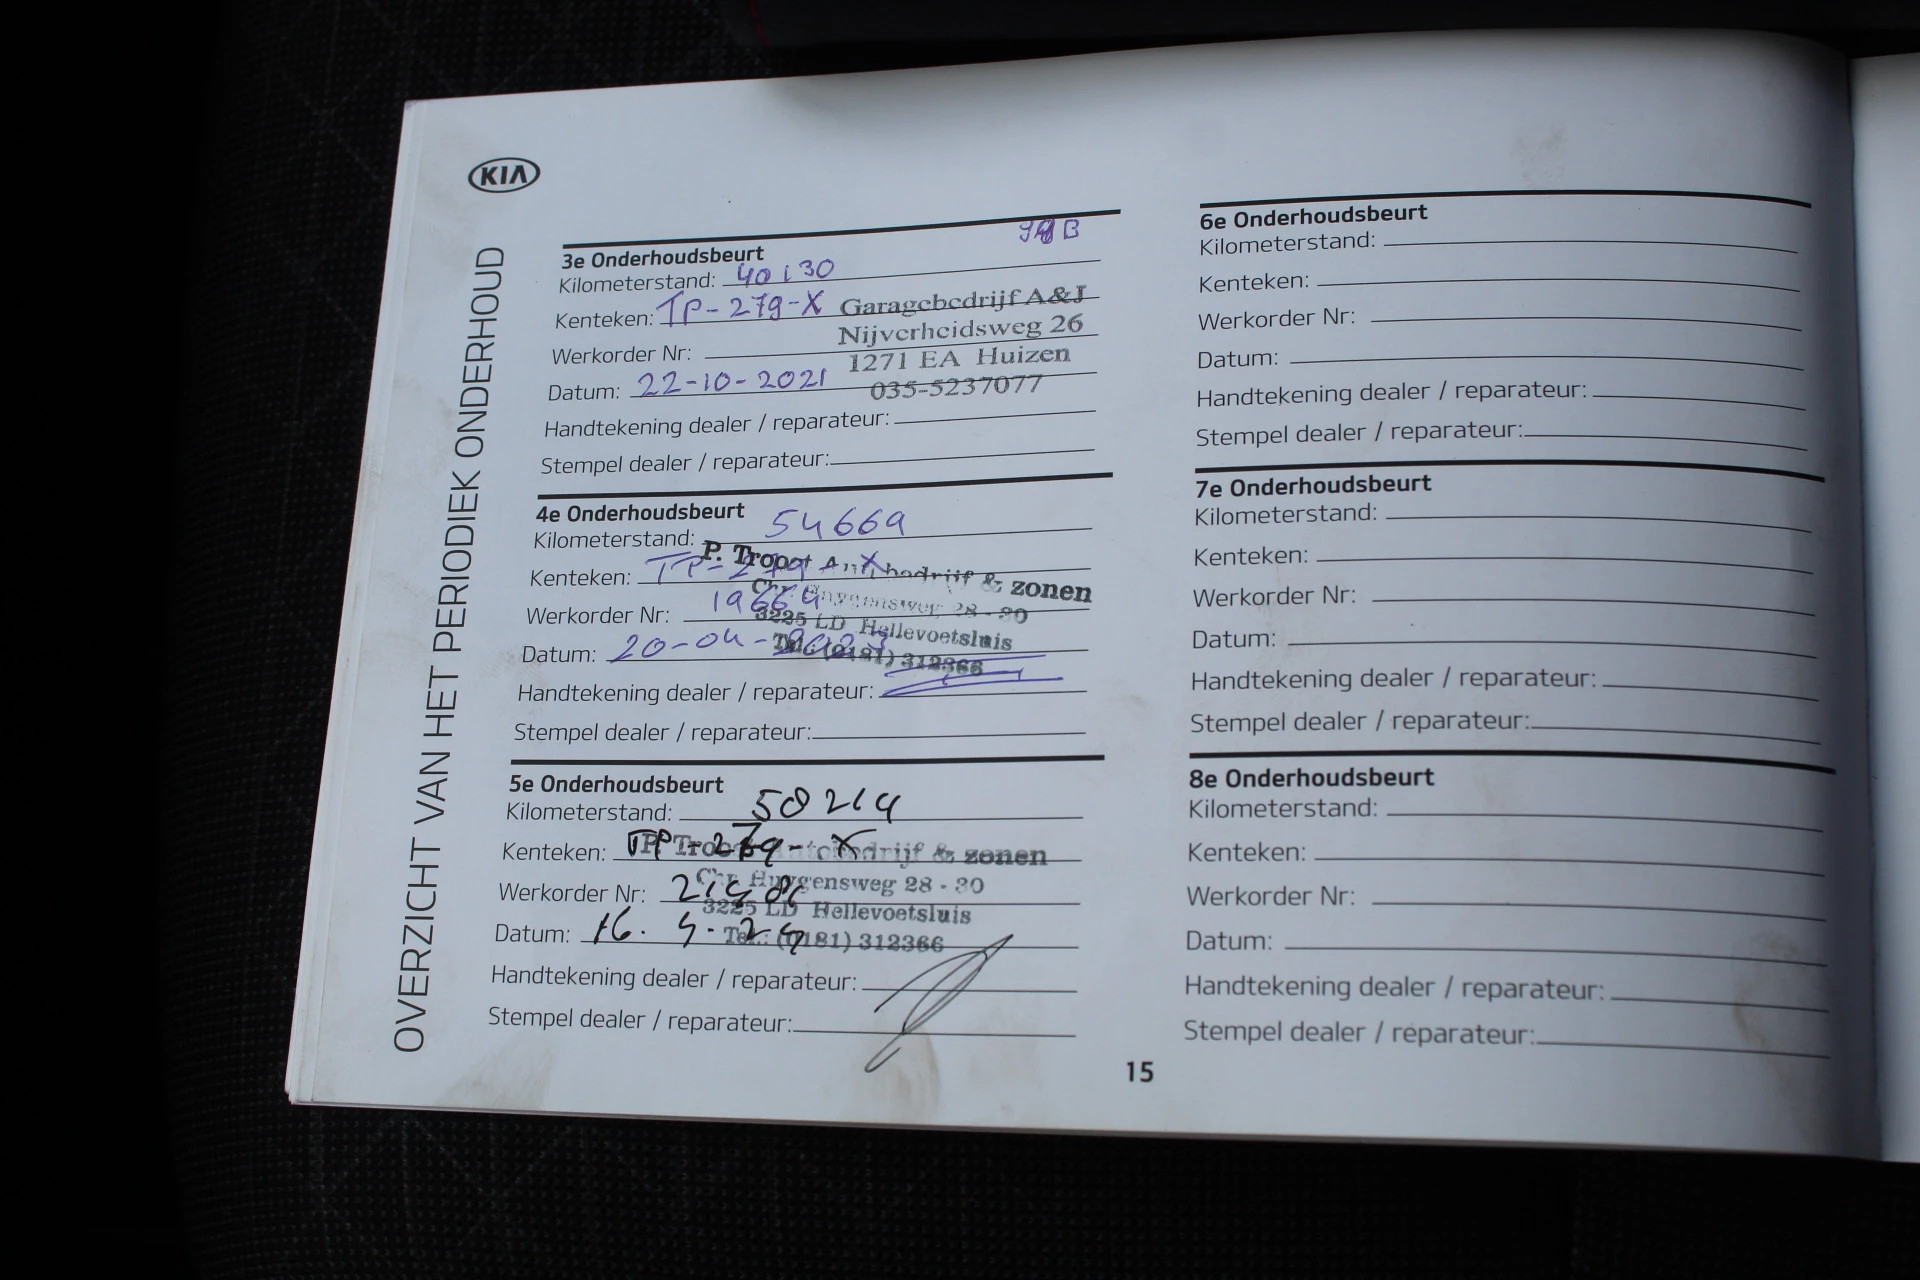 KIA
OVERZICHT VAN HET PERIODIEK ONDERHOUD
3e Onderhoudsbeurt
Kilometerstand: 40130
Kenteken: TP-279-X
Garagebedrijf A&J
Nijverheidsweg 26
Werkorder Nr:
1271 EA Huizen
Datum: 22-10-2021
035-5237077
Handtekening dealer / reparateur:
Stempel dealer / reparateur:
4e Onderhoudsbeurt
Kilometerstand: 54669
P. Troost Autobedrijf & zonen
Kenteken: TP-279-X
Chr. Huygensweg 28 - 30
Werkorder Nr: 19664
3225 LD Hellevoetsluis
Datum: 20-04-
Tel.: (0181) 312366
Handtekening dealer / reparateur:
Stempel dealer / reparateur:
5e Onderhoudsbeurt
Kilometerstand: 58214
Kenteken: TP-279-X
P. Troost Autobedrijf & zonen
Chr. Huygensweg 28 - 30
Werkorder Nr:
3225 LD Hellevoetsluis
Datum: 16.
Tel.: (0181) 312366
Handtekening dealer / reparateur:
Stempel dealer / reparateur:
6e Onderhoudsbeurt
Kilometerstand:
Kenteken:
Werkorder Nr:
Datum:
Handtekening dealer / reparateur:
Stempel dealer / reparateur:
7e Onderhoudsbeurt
Kilometerstand:
Kenteken:
Werkorder Nr:
Datum:
Handtekening dealer / reparateur:
Stempel dealer / reparateur:
8e Onderhoudsbeurt
Kilometerstand:
Kenteken:
Werkorder Nr:
Datum:
Handtekening dealer / reparateur:
Stempel dealer / reparateur:
15